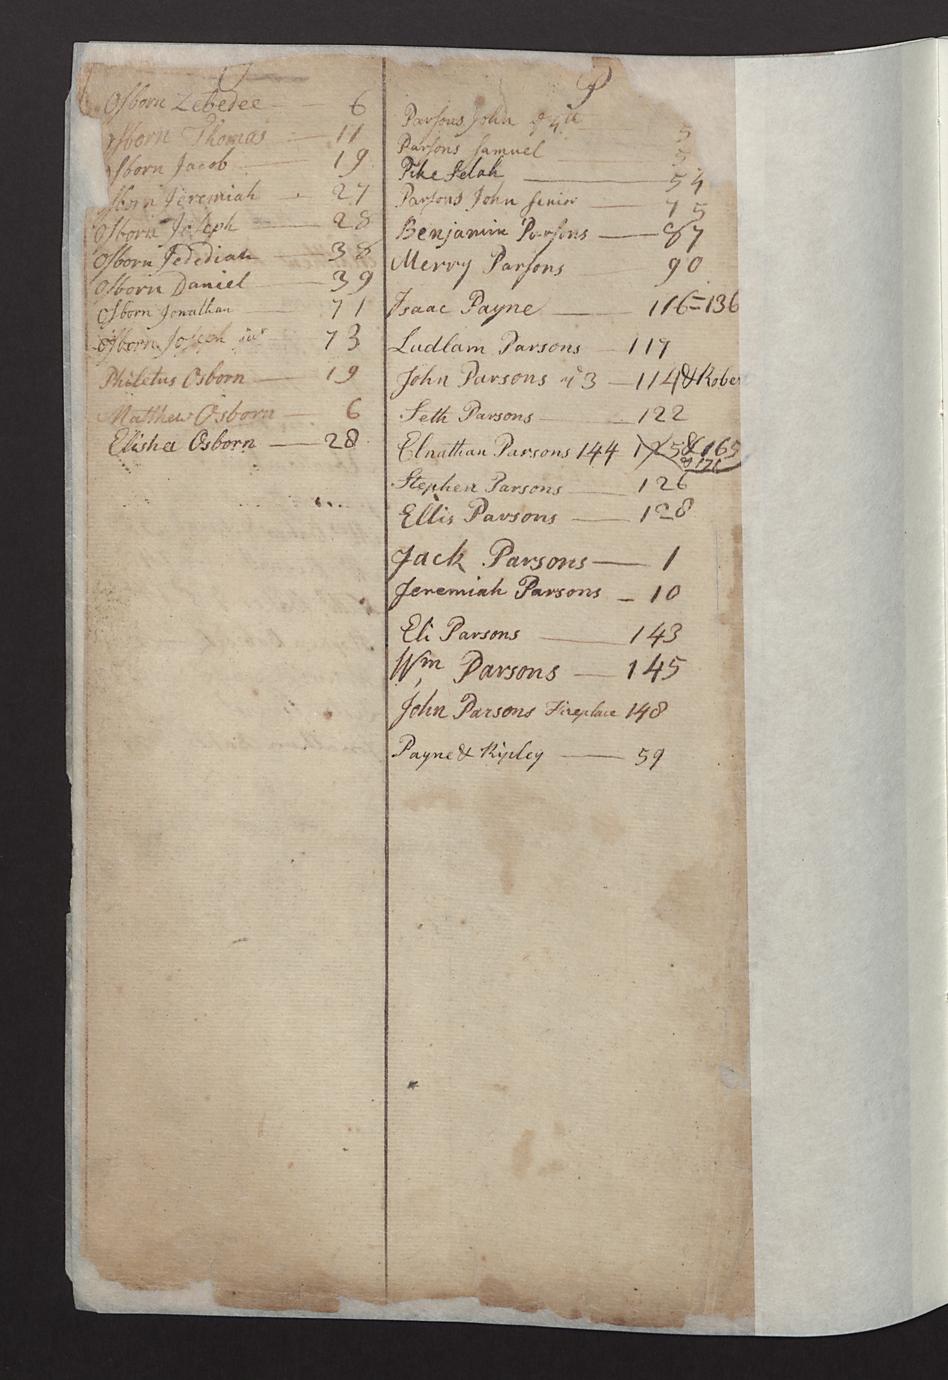 O
Osborn Zebedee — 6
Osborn Thomas — 11
Osborn Jacob — 19
Osborn Jeremiah - 27
Osborn Joseph — 28
Osborn Jedediah — 38
Osborn Daniel — 39
Osborn Jonathan — 71
Osborn Joseph iur 73
Philetus Osborn — 19
Matthew Osborn — 6
Elisha Osborn — 28
P
Parsons John 5
Parsons Samuel
Pike Selah — 54
Parsons John Senior — 75
Benjamin Parsons — 87
Merry Parsons — 90
Isaac Payne — 116=136
Ludlam Parsons — 117
John Parsons 3 — 114 & Rober
Seth Parsons — 122
Elnathan Parsons 144 125 & 165
& 171
Stephen Parsons — 126
Ellis Parsons — 128
Jack Parsons — 1
Jeremiah Parsons — 10
Eli Parsons — 143
Wm Parsons — 145
John Parsons Fireplace 148
Payne & Ripley — 59